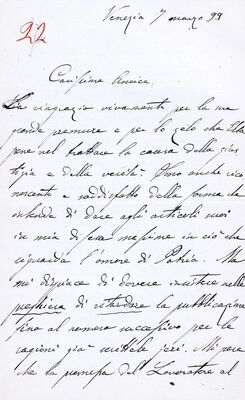 Venezia 7 marzo 93
22
Carissima Amica.
La ringrazio vivamente per la sua
grande premura e per lo zelo che Ella
pone nel trattare la causa della giu
stizia e della verità. Sono anche rico
noscente e soddisfatto della forma che
intende di dare agli articoli suoi
in mia difesa massime in ciò che
riguarda l'amore di Patria. Ma
mi dispiace di dovere insistere nella
preghiera di ritardare la pubblicazione
fino al numero successivo per le
ragioni già scrittele jeri. Mi pare
che la promessa del Lavoratore al